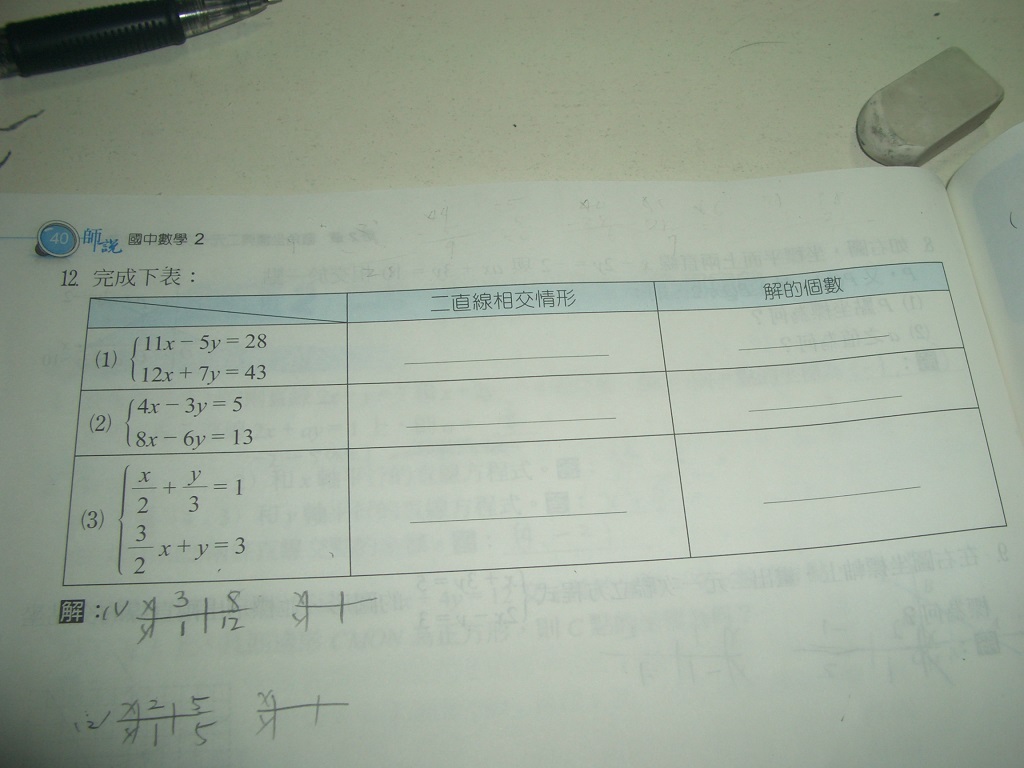 40 師說 國中數學 2
12. 完成下表：
二直線相交情形 解的個數
(1) { 11x − 5y = 28
12x + 7y = 43
(2) { 4x − 3y = 5
8x − 6y = 13
(3) { x/2 + y/3 = 1
3/2 x + y = 3
解：(1) x 3 8 x
y 1 12 y
(2) x 2 5 x
y 1 5 y